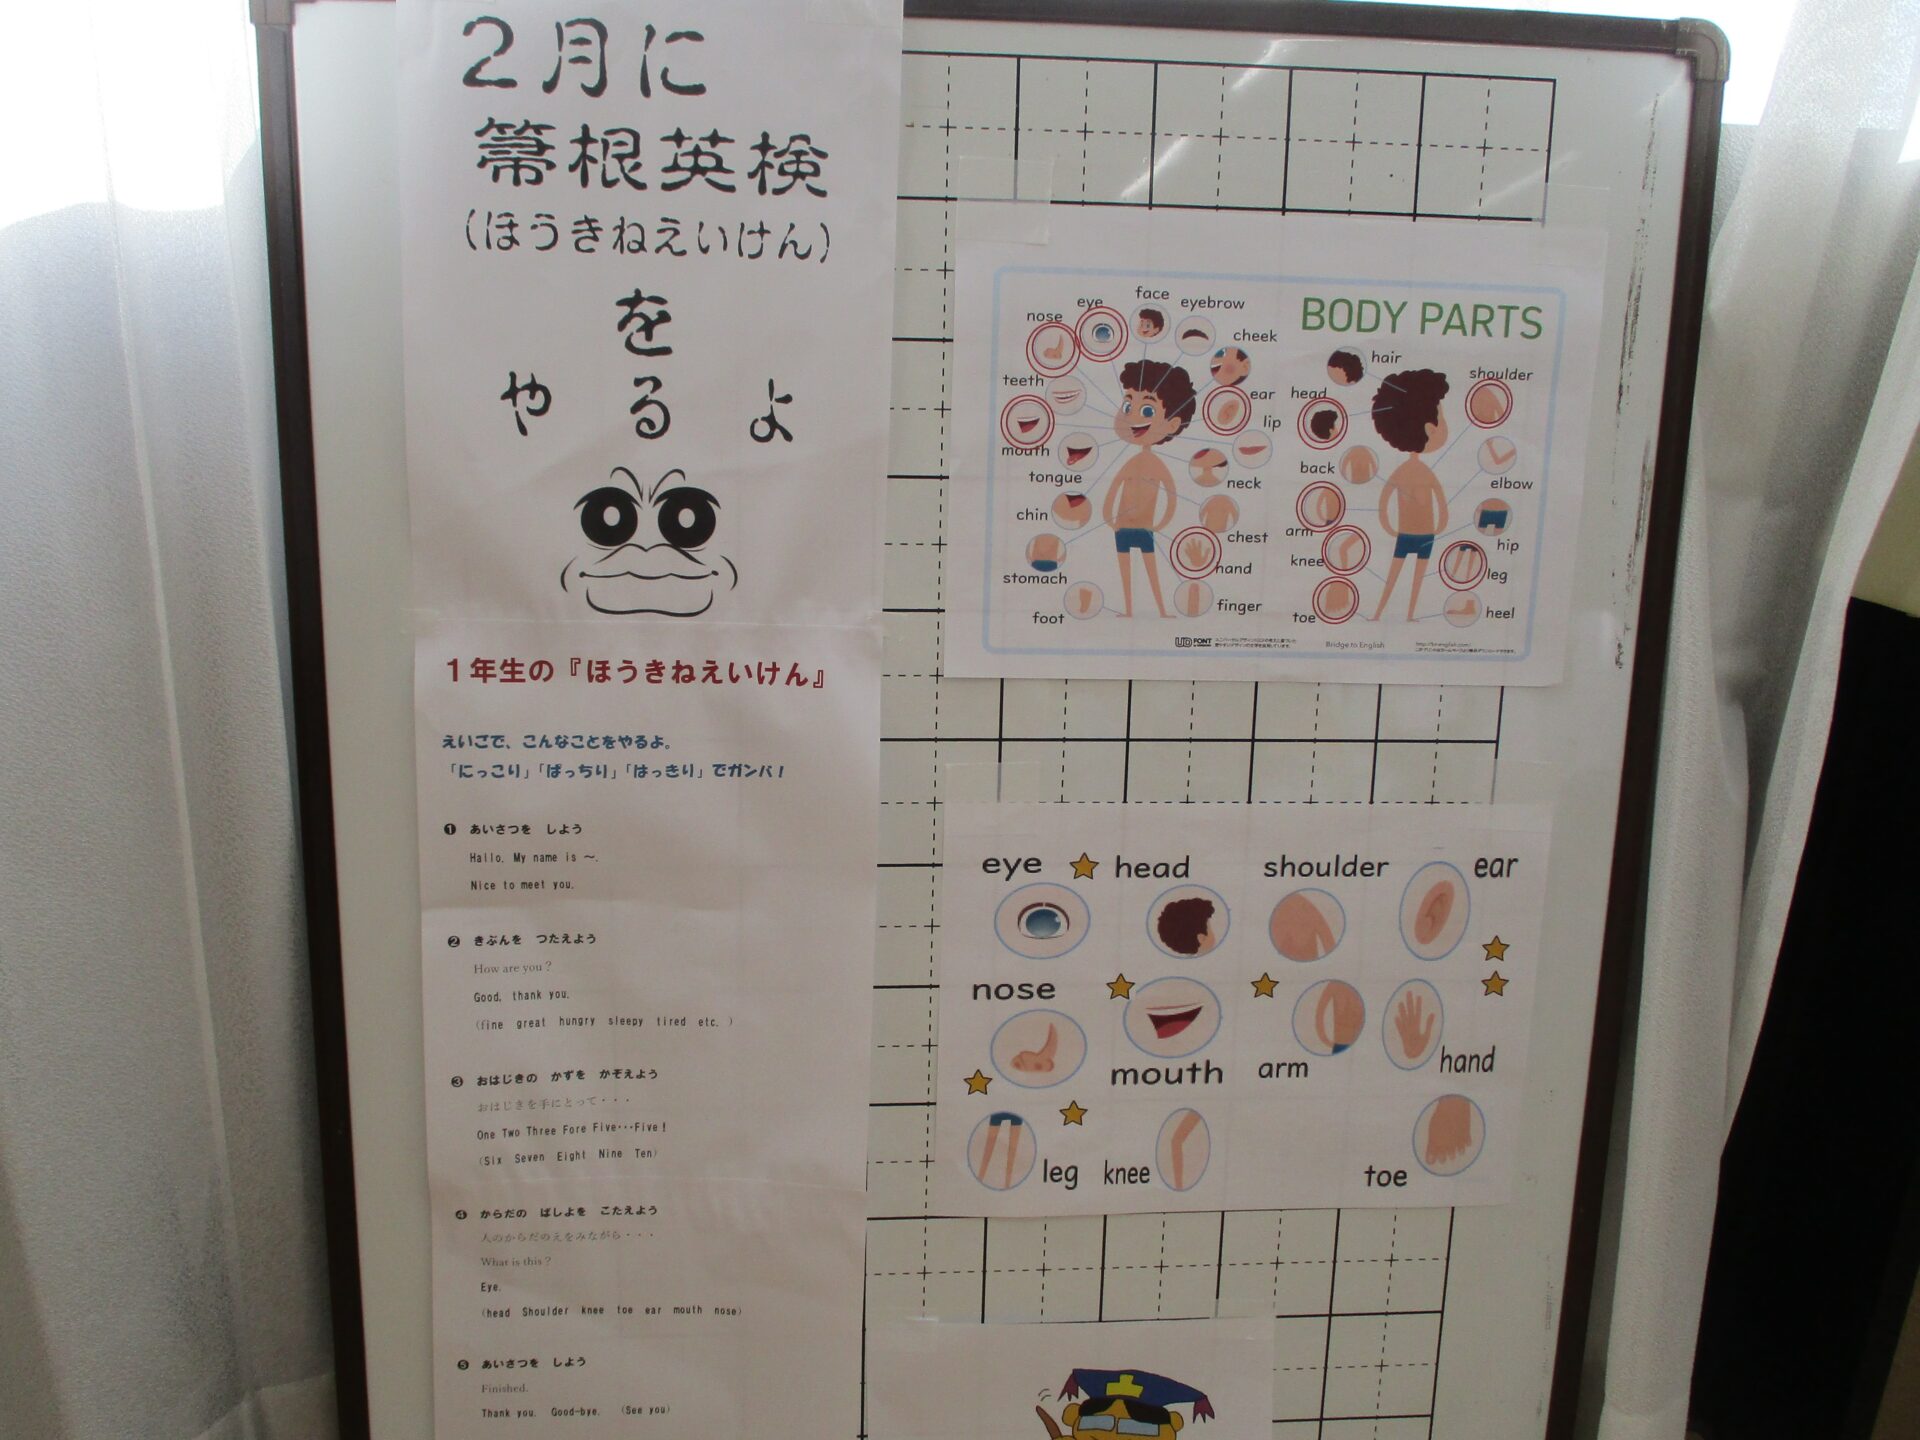 2月に
箒根英検
(ほうきねえいけん)
を
やるよ
1年生の『ほうきねえいけん』
えいごで、こんなことをやるよ。
「にっこり」「ぱっちり」「はっきり」でガンバ!
❶ あいさつを しよう
Hallo. My name is ～.
Nice to meet you.
❷ きぶんを つたえよう
How are you?
Good, thank you.
(fine great hungry sleepy tired etc. )
❸ おはじきの かずを かぞえよう
おはじきを手にとって・・・
One Two Three Fore Five･･･Five!
(Six Seven Eight Nine Ten)
❹ からだの ばしよを こたえよう
人のからだのえをみながら・・・
What is this?
Eye.
(head Shoulder knee toe ear mouth nose)
❺ あいさつを しよう
Finished.
Thank you. Good-bye. (See you)
BODY PARTS
face
eye
eyebrow
nose
cheek
teeth
ear
lip
mouth
tongue
neck
chin
chest
stomach
hand
foot
finger
hair
shoulder
head
back
elbow
arm
hip
knee
leg
toe
heel
UD FONT
Bridge to English
eye head shoulder ear
nose
mouth arm hand
leg knee toe